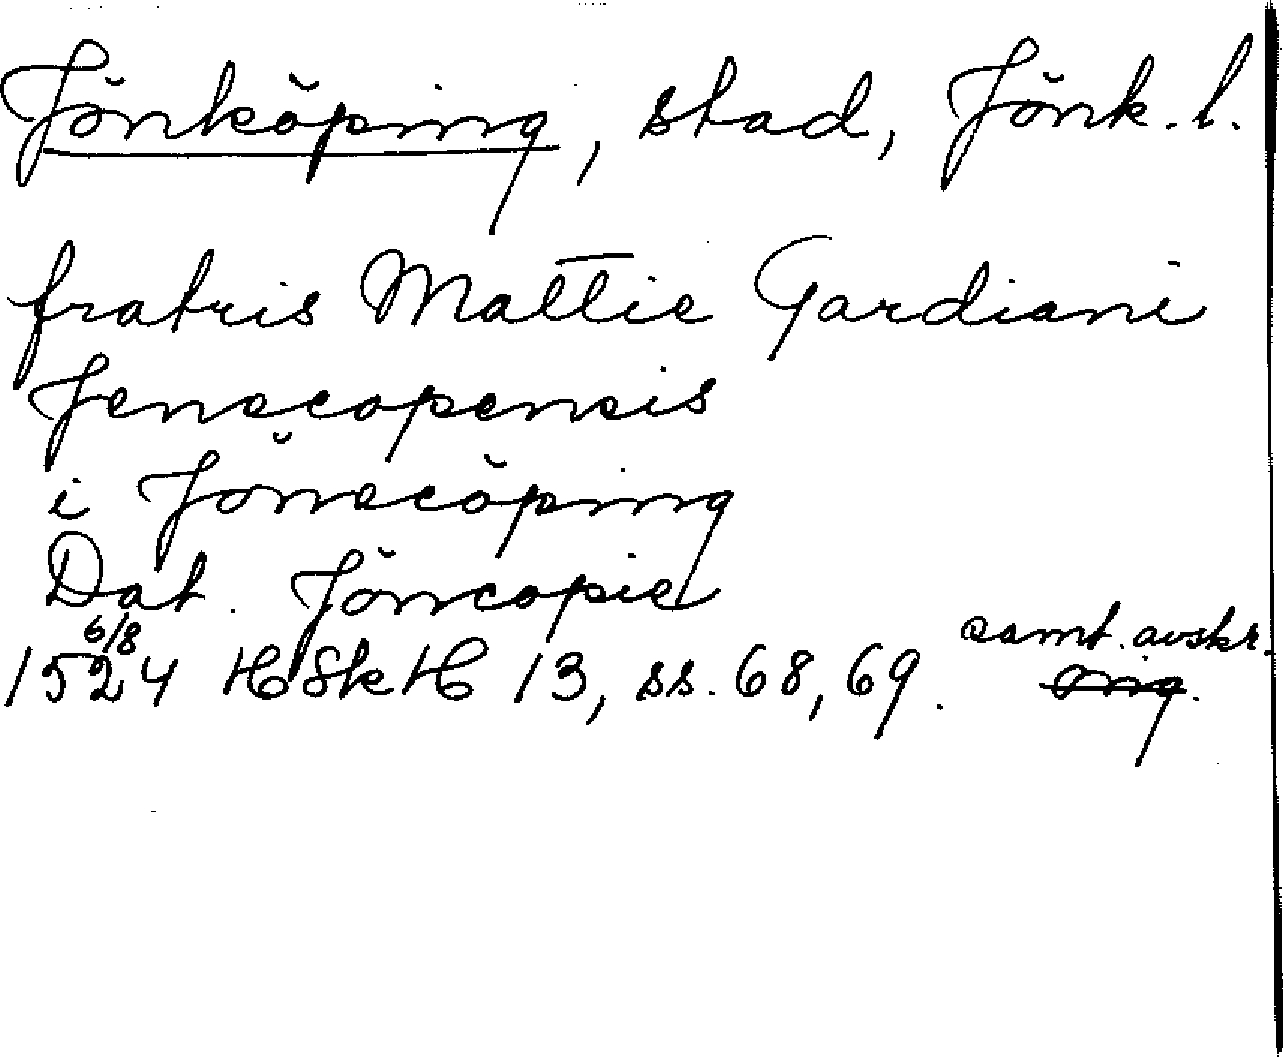 Jönköping, stad, Jönk. l.
fratris Mattie Gardiani
Jenecopensis
i Jönecöping
Dat. Jöncopie
6/8 samt. avskr.
1524 HSkH 13, ss. 68, 69. orig.